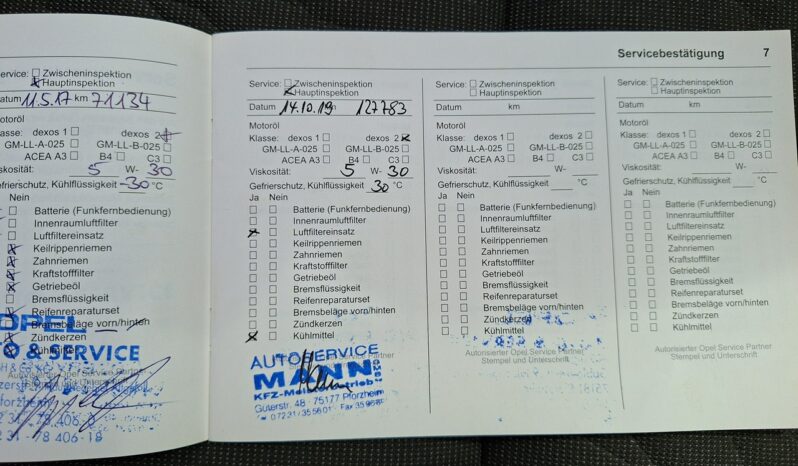 Servicebestätigung 7
Service: Zwischeninspektion
Hauptinspektion
Datum 11.5.17 km 71134
Motoröl
Klasse: dexos 1 dexos 2
GM-LL-A-025 GM-LL-B-025
ACEA A3 B4 C3
Viskosität: 5 W- 30
Gefrierschutz, Kühlflüssigkeit -30 °C
Nein
Batterie (Funkfernbedienung)
Innenraumluftfilter
Luftfiltereinsatz
Keilrippenriemen
Zahnriemen
Kraftstofffilter
Getriebeöl
Bremsflüssigkeit
Reifenreparaturset
Bremsbeläge vorn/hinten
Zündkerzen
Kühlmittel
OPEL
& SERVICE
Stempel und Unterschrift
78 406-18
Service: Zwischeninspektion
Hauptinspektion
Datum 14.10.19 127783
Motoröl
Klasse: dexos 1 dexos 2
GM-LL-A-025 GM-LL-B-025
ACEA A3 B4 C3
Viskosität: 5 W- 30
Gefrierschutz, Kühlflüssigkeit 30 °C
Ja Nein
Batterie (Funkfernbedienung)
Innenraumluftfilter
Luftfiltereinsatz
Keilrippenriemen
Zahnriemen
Kraftstofffilter
Getriebeöl
Bremsflüssigkeit
Reifenreparaturset
Bremsbeläge vorn/hinten
Zündkerzen
Kühlmittel
AUTOSERVICE
MANN
KFZ-Meisterbetrieb
Güterstr. 48 · 75177 Pforzheim
Service: Zwischeninspektion
Hauptinspektion
Datum km
Motoröl
Klasse: dexos 1 dexos 2
GM-LL-A-025 GM-LL-B-025
ACEA A3 B4 C3
Viskosität: W-
Gefrierschutz, Kühlflüssigkeit °C
Ja Nein
Batterie (Funkfernbedienung)
Innenraumluftfilter
Luftfiltereinsatz
Keilrippenriemen
Zahnriemen
Kraftstofffilter
Getriebeöl
Bremsflüssigkeit
Reifenreparaturset
Bremsbeläge vorn/hinten
Zündkerzen
Kühlmittel
Autorisierter Opel Service Partner
Stempel und Unterschrift
Service: Zwischeninspektion
Hauptinspektion
Datum km
Motoröl
Klasse: dexos 1 dexos 2
GM-LL-A-025 GM-LL-B-025
ACEA A3 B4 C3
Viskosität: W-
Gefrierschutz, Kühlflüssigkeit °C
Ja Nein
Batterie (Funkfernbedienung)
Innenraumluftfilter
Luftfiltereinsatz
Keilrippenriemen
Zahnriemen
Kraftstofffilter
Getriebeöl
Bremsflüssigkeit
Reifenreparaturset
Bremsbeläge vorn/hinten
Zündkerzen
Kühlmittel
Autorisierter Opel Service Partner
Stempel und Unterschrift